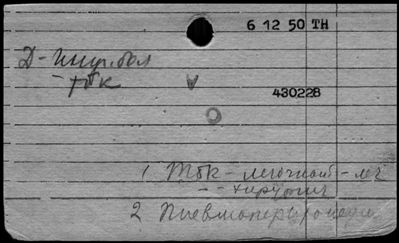 6 12 50 TH
Д-
- твк
430228
1 Твк - легочной - леч
- - хирургич
2 Пневмоперитонеум